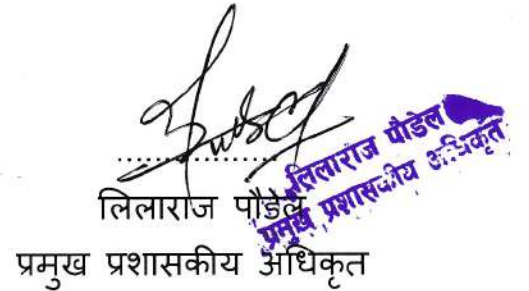 लिलाराज पौडेल
प्रमुख प्रशासकीय अधिकृत
लिलाराज पौडेल
प्रमुख प्रशासकीय अधिकृत